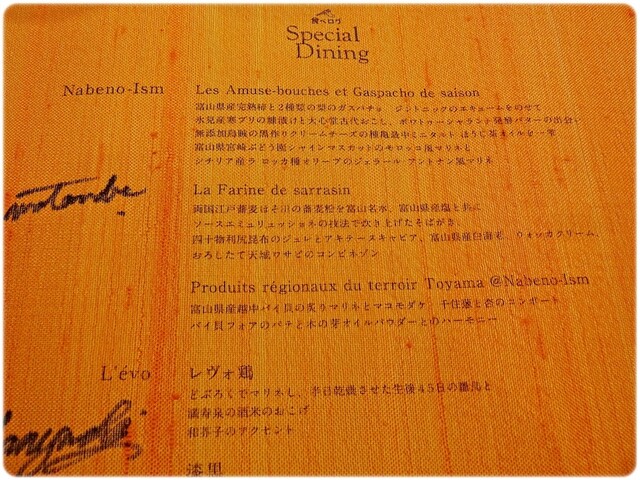 食べログ
Special
Dining
Nabeno-Ism
Les Amuse-bouches et Gaspacho de saison
富山県産完熟柿と2種類の梨のガスパチョ ジントニックのエキュームをのせて
氷見産寒ブリの糠漬けと大心堂古代おこし、ポワトゥーシャラント発酵バターの出会い
無添加烏賊の黒作りクリームチーズの種亀最中ミニタルト ほうじ茶オイルを一雫
富山県宮崎ぶどう園シャインマスカットのモロッコ風マリネと
シチリア産ラ ロッカ種オリーブのジェラール アントナン風マリネ
La Farine de sarrasin
両国江戸蕎麦ほそ川の蕎麦粉を富山名水、富山県産塩と共に
ソースエミュリュッショネの技法で炊き上げたそばがき、
四十物利尻昆布のジュレとアキテーヌキャビア、富山県産白海老、ウォッカクリーム、
おろしたて天城ワサビのコンビネゾン
Produits régionaux du terroir Toyama @Nabeno-Ism
富山県産越中バイ貝の炙りマリネとマコモダケ 千住葱と杏のコンポート
バイ貝フォアのパテと木の芽オイルパウダーとのハーモニー
L'évo
レヴォ鶏
どぶろくでマリネし、半日乾燥させた生後45日の雛鳥と
満寿泉の酒米のおこげ
和芥子のアクセント
漆黒